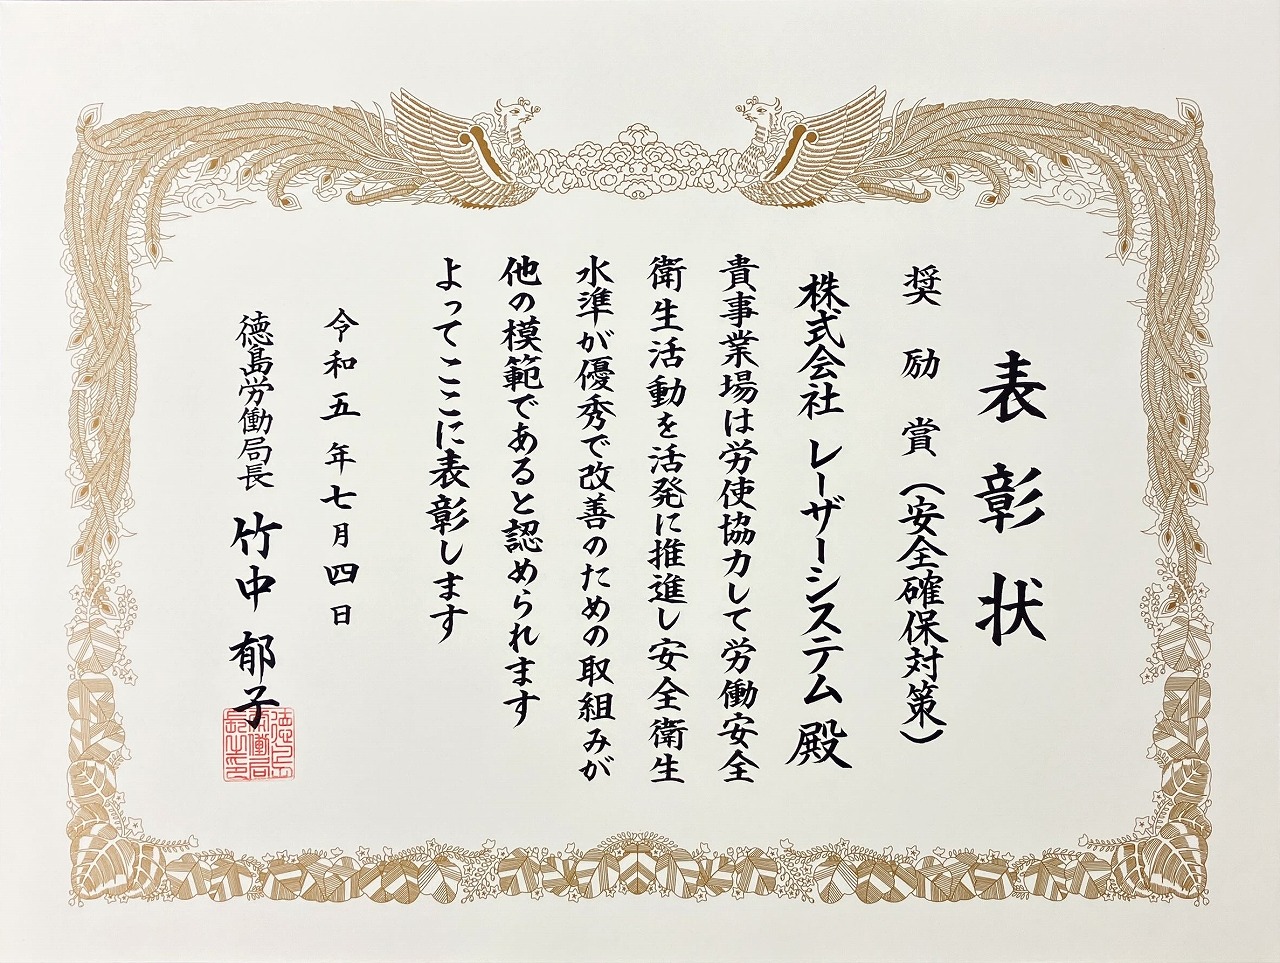 表彰状
奨励賞（安全確保対策）
株式会社 レーザーシステム 殿
貴事業場は労使協力して労働安全
衛生活動を活発に推進し安全衛生
水準が優秀で改善のための取組みが
他の模範であると認められます
よってここに表彰します
令和五年七月四日
徳島労働局長 竹中 郁子